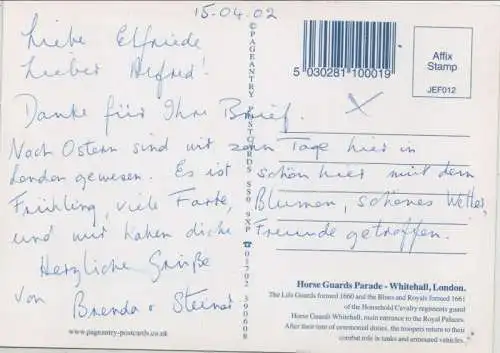 15-04.02
Liebe Elfriede
Lieber Alfred!
Danke für Ihre Brief.
Nach Ostern sind wir zehn Tage hier in
London gewesen. Es ist schön hier mit den
Frühling, viele Farbe, Blumen, schönes Wetter,
und wir haben Freunde getroffen.
Herzliche Grüße
von Brenda + Steiner
5 030281 100019
Affix
Stamp
JEF012
© PAGEANTRY POSTCARDS SS0 9XP ☎ 01702 390608
Horse Guards Parade - Whitehall, London.
The Life Guards formed 1660 and the Blues and Royals formed 1661
of the Household Cavalry regiments guard
Horse Guards Whitehall, main entrance to the Royal Palaces.
After their tour of ceremonial duties, the troopers return to their
combat role in tanks and armoured vehicles.
www.pageantry-postcards.co.uk